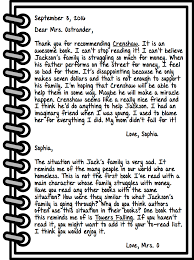 September 3, 2016
Dear Mrs. Ostrander,
Thank you for recommending Crenshaw. It is an
awesome book. I can't stop reading it! I can't believe
Jackson's family is struggling so much for money. When
his father performs on the street for money, I feel
so bad for them. It's disappointing because he only
makes seven dollars and that is not enough to support
his family. I'm hoping that Crenshaw will be able to
help them in some way. Maybe he will make a miracle
happen. Crenshaw seems like a really nice friend and
I think he'd do anything to help Jackson. I had an
imaginary friend when I was young. I used to blame
her for everything I did. My mom didn't fall for it!
Love, Sophia
Sophia,
The situation with Jack's family is very sad. It
reminds me of the many people in our world who are
homeless. This is not the first book I've read with a
main character whose family struggles with money.
Have you read any other books with the same
situation? How were they similar to what Jackson's
family is going through? Why do you think authors
often use this situation in their books? One book that
this reminds me of is Towers Falling. If you haven't
read it, you might want to add it to your to-read list.
I think you would enjoy it.
Love, Mrs. O